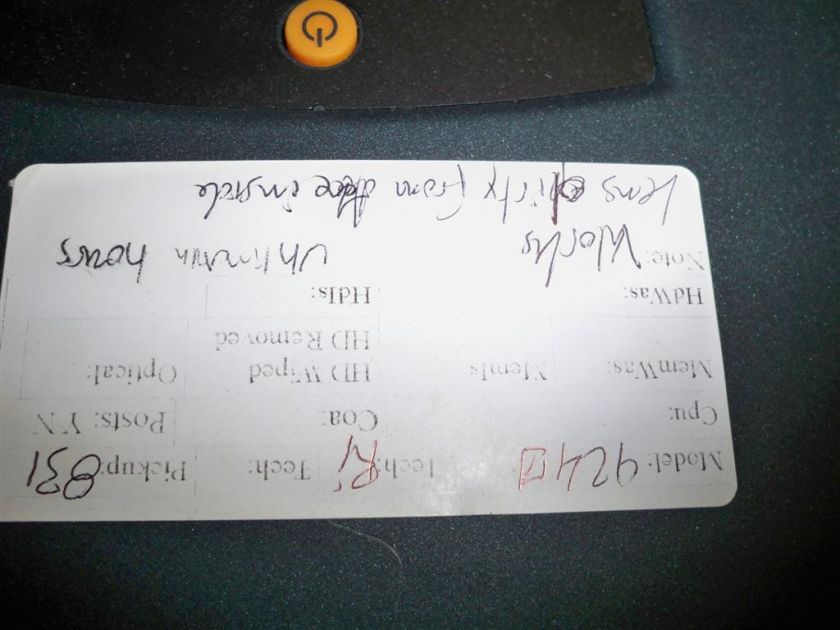 Model: Tech: Rj Tech: Pickup: 831
Cpu: Coa: Posts: Y N
MemWas: MemIs: HD Wiped Optical:
HD Removed
HdWas: HdIs:
Note: Works hours
Lens dirty from inside